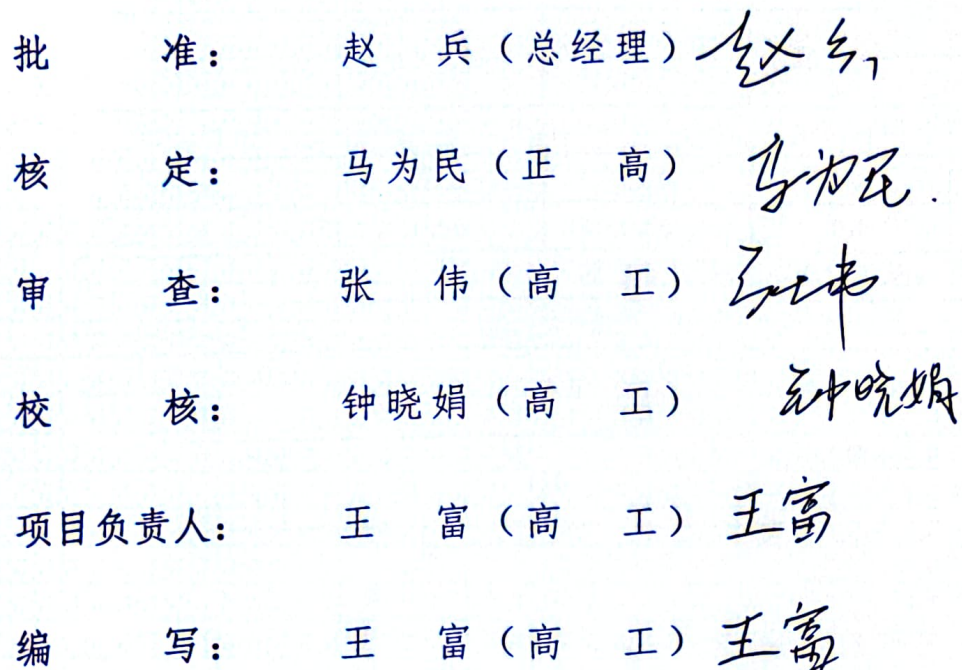 批 准： 赵 兵（总经理） 赵兵
核 定： 马为民（正 高） 马为民.
审 查： 张 伟（高 工） 张伟
校 核： 钟晓娟（高 工） 钟晓娟
项目负责人： 王 富（高 工） 王富
编 写： 王 富（高 工） 王富